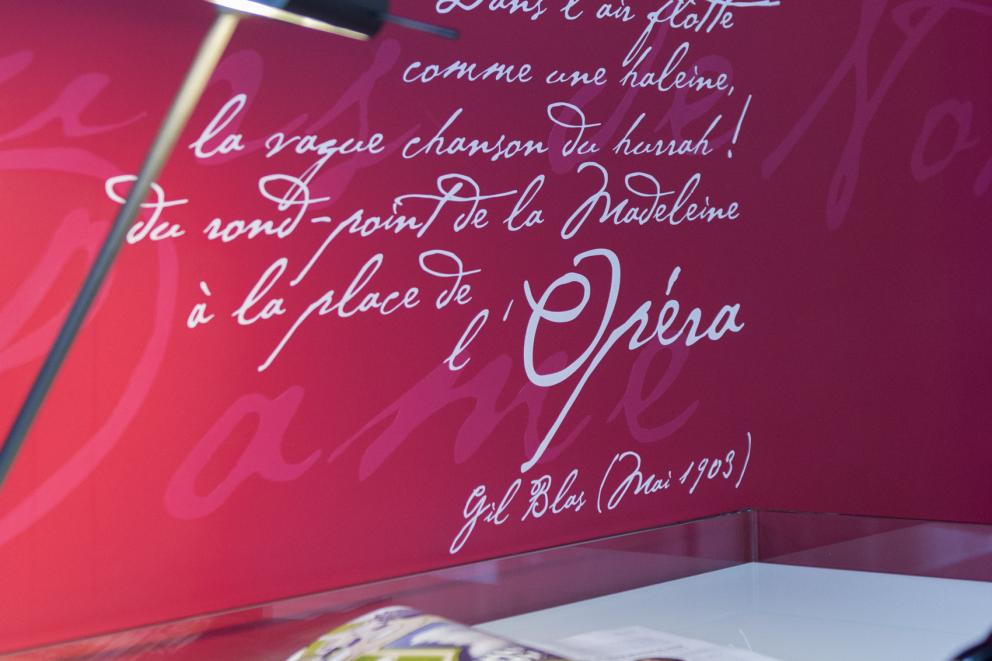 Dans l'air flotte
comme une haleine,
la vague chanson du hurrah !
Du rond-point de la Madeleine
à la place de
l'Opéra
Gil Blas (Mai 1903)
ues de No
Dame